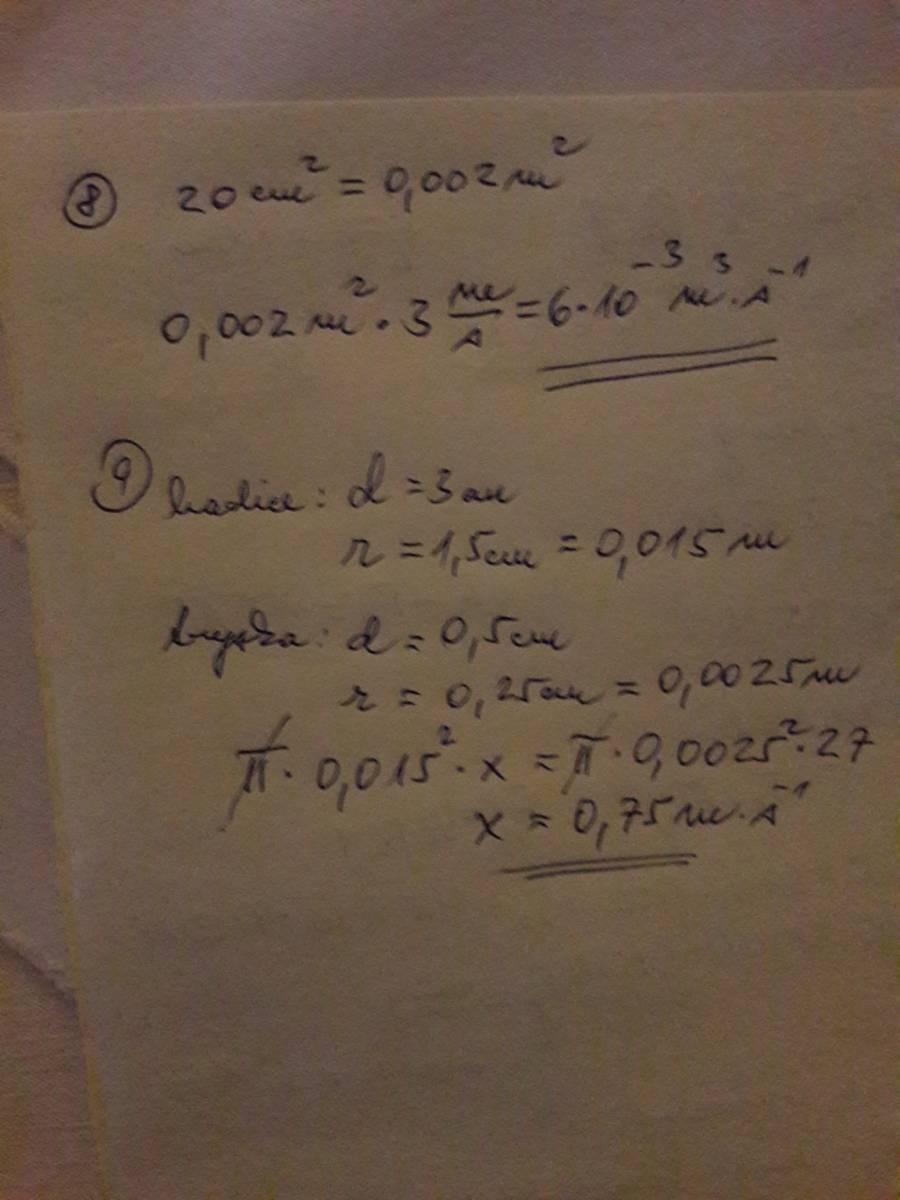 ⑧ 20 cm² = 0,002 m²
0,002 m² · 3 m/s = 6·10⁻³ m³·s⁻¹
⑨ hadice: d = 3 cm
r = 1,5 cm = 0,015 m
tryska: d = 0,5 cm
r = 0,25 cm = 0,0025 m
π · 0,015² · x = π · 0,0025² · 27
x = 0,75 m·s⁻¹